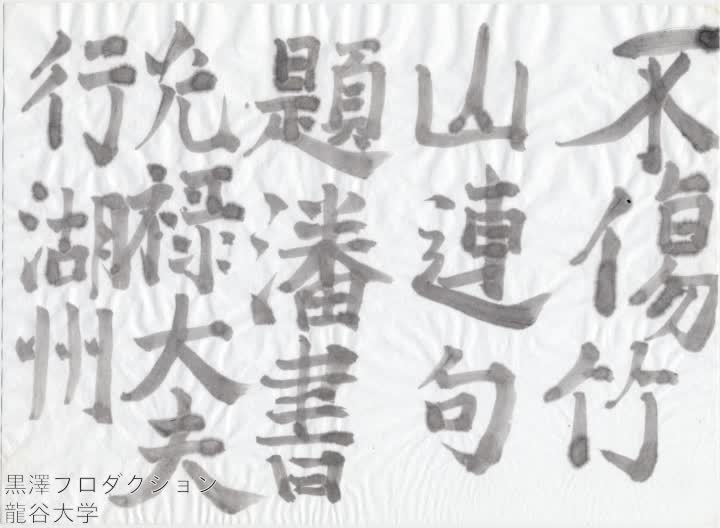 不傷竹
山連句
題潘書
光禄大夫
行湖州
黒澤プロダクション
龍谷大学